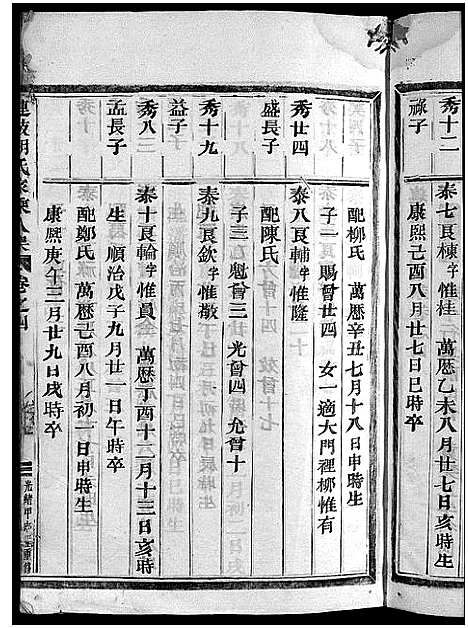 秀十二
祿子
泰七良棟字惟桂 萬歷乙未八月廿七辰時生
康熙己酉八月廿七日巳時卒
配柳氏 萬歷辛丑七月十八日申時生
子一 賜曾廿四 女一適大門裡柳惟有
秀廿四
盛長子
泰八良輔字惟隆
配陳氏
子三 魁曾三 光曾四 允曾十
秀十九
益子
泰九良欽字惟敬
秀八二
孟長子
泰十良輪字惟員 萬歷丁酉十二月十三日亥時
生 順治戊子九月廿一日午時卒
配鄭氏 萬歷己酉八月初一日申時生
康熙庚午三月廿九日戌時卒
卷之四
光緒甲